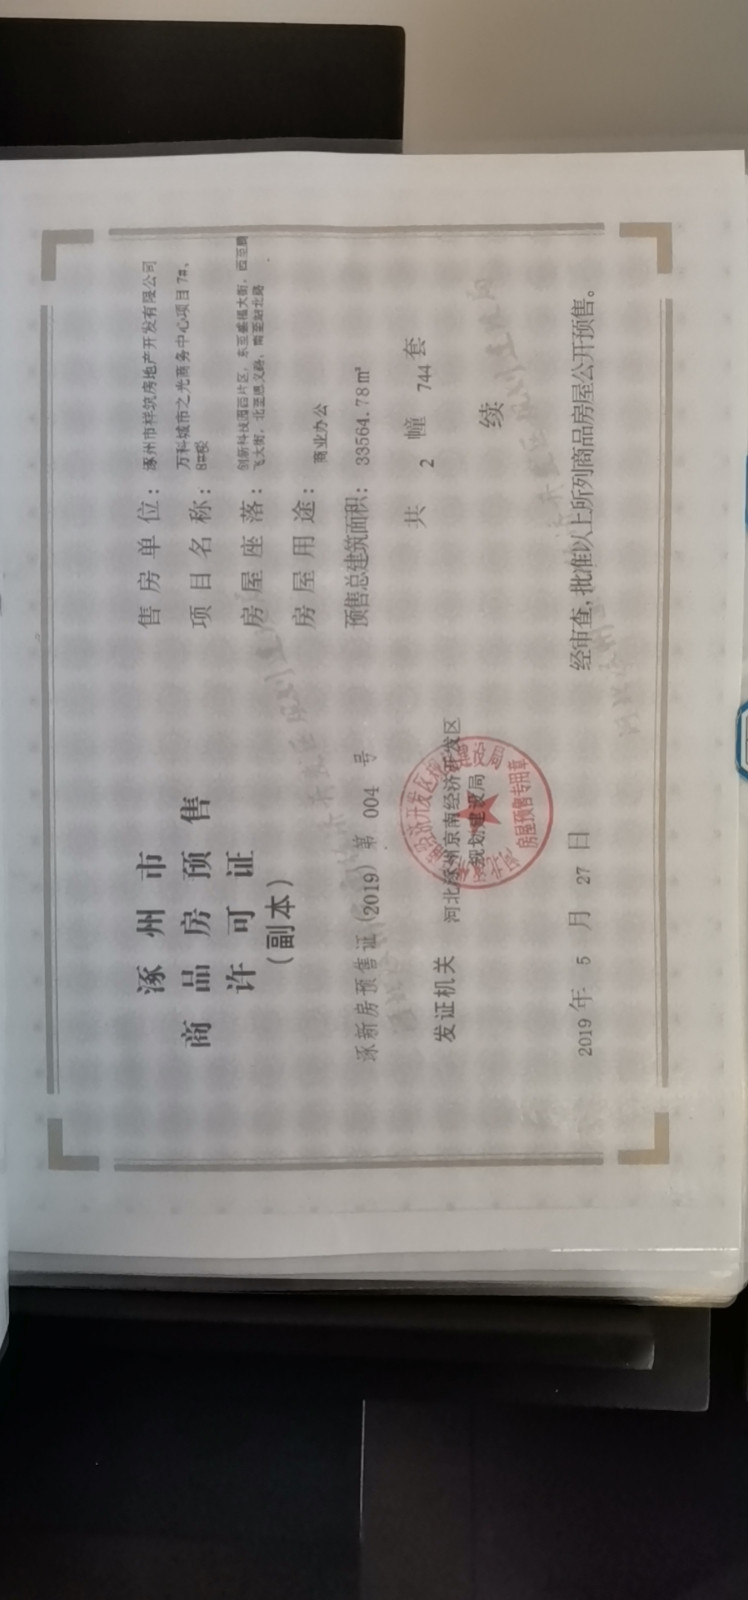 涿州市
商品房预售
许可证
(副本)
涿新房预售证(2019)第 004 号
发证机关 河北涿州京南经济开发区
规划建设局
房屋预售专用章
2019 年 5 月 27 日
售房单位：涿州市祥筑房地产开发有限公司
项目名称：万科城市之光商务中心项目7#、
8#楼
房屋座落：创新科技园西片区，东至盛福大街，西至腾
飞大街，北至恩义路，南至站北路
房屋用途：商业办公
预售总建筑面积：33564.78㎡
共 2 幢 744 套
续
经审查,批准以上所列商品房屋公开预售。